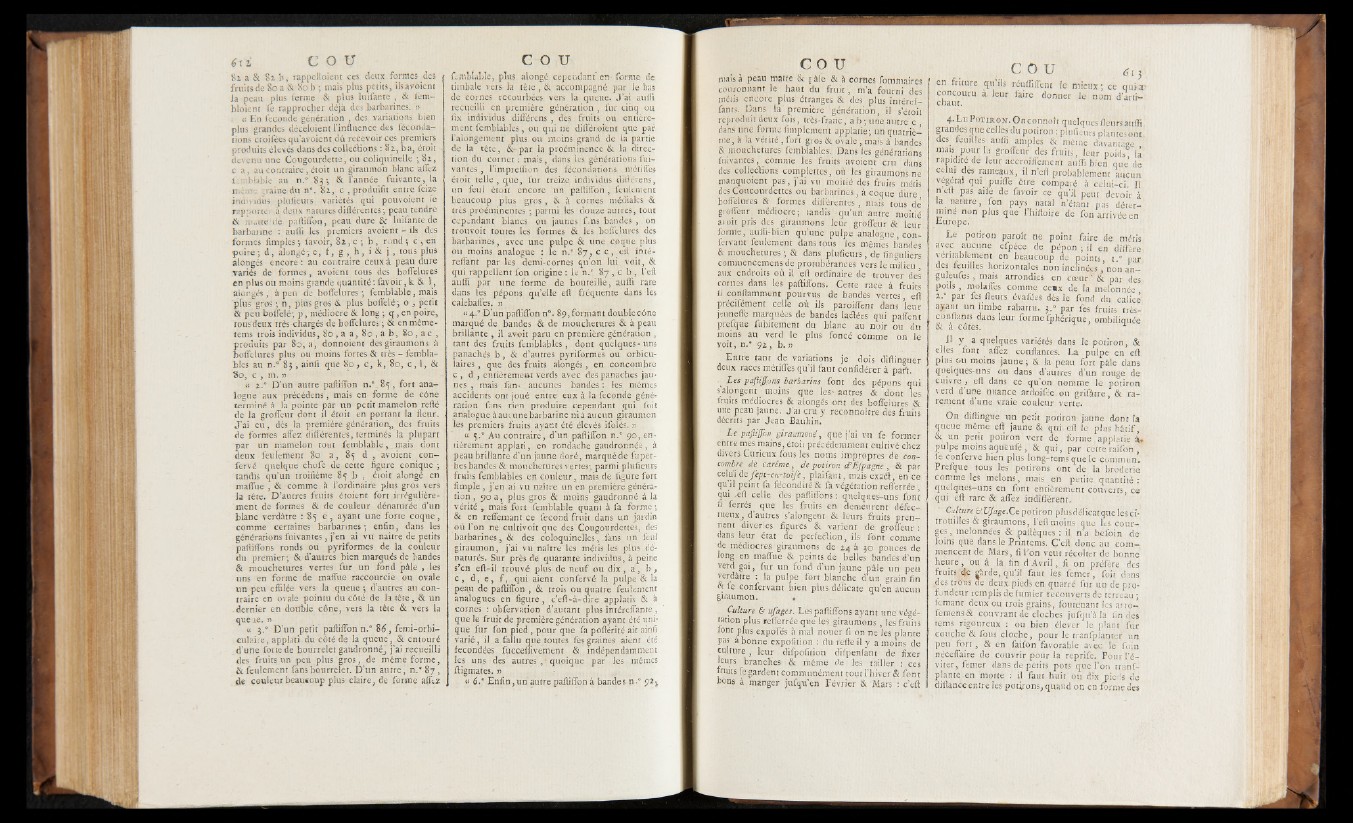 612 COU
82 a & 82 b, rappelloient ces deux formes des
fruits de 80 a & 80 b ; mais plus petits, ils avoient
la peau plus ferme & plus luisante, & sem-
bloient se rapprocher déja des barbarines. »
« En seconde génération, des variations bien
plus grandes déceloient l'influence des féconda-
tions croisées qu'avoient dû recevoir ces premiers
produits élevés dans des collections : 82, ba, étoit
devenu une Cougourdette, ou coliquinelle ; 82,
c a, au contraire, étoit un giraumon blanc assez
semblable au n.° 83 ; & l'année suivante, la
même graine du n°. 82, c, produisit entre seize
individus plusieurs variétés qui pouvoient se
rapporter à deux natures différentes ; peau tendre
& matte de pastisson, peau dure & luisante de
barbarine : aussi les premiers avoient-ils des
formes simples ; savoir, 82, c ; b, rond ; c, en
poire ; d, alongé ; e, f, g, h, i & j, tous plus
alongés encore : au contraire ceux à peau dure
variés de formes, avoient tous des bosselures
en plus ou moins grande quantité : savoir, k & l,
alongés, à peu de bosselures ; semblable, mais
plus gros ; n, plus gros & plus bosselé ; o, petit
& peu bosselé ; p, médiocre & long ; q, en poire,
tous deux très chargés de bosselures ; & en même-
tems trois individus, 80, a a, 80, a b, 80, a c,
produits par 80, a, donnoient des giraumons à
bosselures plus ou moins fortes & très-sembla-
bles au n.° 83, ainsi que 80, c, k, 80, c, l, &
80, c, m. »
« 2.° D'un autre pastisson n.° 85, fort ana-
logue aux précédens, mais en forme de cône
terminé à la pointe par un petit mamelon reste
de la grosseur dont il étoit en portant la fleur.
J'ai eu, dès la première génération, des fruits
de formes assez différentes, terminés la plupart
par un mamelon tout semblable, mais dont
deux seulement 80 a, 85 d, avoient con-
servé quelque chose de cette figure conique ;
tandis qu'un troisième 85 b, étoit alongé en
massue, & comme à l'ordinaire plus gros vers
la tête. D'autres fruits étoient fort irrégulière-
ment de formes & de couleur dénaturée d'un
blanc verdâtre : 85 c, ayant une forte coque,
comme certaines barbarines ; enfin, dans les
générations suivantes, j'en ai vu naitre de petits
pastissons ronds ou pyriformes de la couleur
du premier ; & d'autres bien marqués de bandes
& mouchetures vertes sur un fond pâle, les
uns en forme de massue raccourcie ou ovale
un peu effilée vers la queue ; d'autres au con-
traire en ovale pointu du côté de la tête, & un
dernier en double cône, vers la tête & vers la
queue. »
« 3.° D'un petit pastisson n.° 86, semi-orbi-
culaire, applati du côté de la queue, & entouré
d'une sorte de bourrelet gaudronné, j'ai recueilli
des fruits un peu plus gros, de même forme,
& seulement sans bourrelet. D'un autre, n.° 87,
de couleur beaucoup plus claire, de forme assez
COU
semblable, plus alongé cependant en forme de
timbale vers la tête, & accompagné par le bas
de cornes recourbées vers la queue. J'ai aussi
recueilli en première génération, sur cinq ou
six individus différens, des fruits ou entière-
ment semblables, ou qui ne différoient que par
l'alongement plus ou moins grand de la partie
de la tête, & par la proéminence & la direc-
tion du cornet : mais, dans les générations sui-
vantes, l'impression des fécondations métisses
étoit telle, que, sur treize individus différens,
un seul étoit encore un pastisson, seulement
beaucoup plus gros, & à cornes médiales &
très proéminentes ; parmi les douze autres, tout
cependant blancs ou jaunes sans bandes, on
trouvoit toutes les formes & les bosselures des
barbarines, avec une pulpe & une coque plus
ou moins analogue : le n.° 87, c c, est inté-
ressant par les demi-cornes qu'on lui voit, &
qui rappellent son origine : le n.° 87, c b, l'est
aussi par une forme de bouteille, aussi rare
dans les pépons qu'elle est fréquente dans les
calebasses. »
« 4.° D'un pastisson n°. 89, formant double cône
marqué de bandes & de mouchetures & à peau
brillante, il avoit paru en première génération,
tant des fruits semblables, dont quelques-uns
panachés b, & d'autres pyriformes ou orbicu-
laires, que des fruits alongés, en concombre
c, d, entièrement verds avec des panaches jau-
nes, mais sans aucunes bandes : les mêmes
accidents ont joué entre eux à la seconde géné-
ration sans rien produire cependant qui soit
analogue à aucune barbarine ni à aucun giraumon
les premiers fruits ayant été élevés isolés. »
« 5.° Au contraire, d'un pastisson n.° 90, en-
tièrement applati, en rondache gaudronnée, à
peau brillante d'un jaune doré, marqué de super-
bes bandes & mouchetures vertes ; parmi plusieurs
fruits semblables en couleur, mais de figure fort
simple, j'en ai vu naître un en première généra-
tion, 90 a, plus gros & moins gaudronné à la
vérité, mais fort semblable quant à sa forme ;
& en ressemant ce second fruit dans un jardin
où l'on ne cultivoit que des Cougourdettes, des
barbarines, & des coloquinelles, sans un seul
giraumon, j'ai vu naître les métis les plus dé-
naturés. Sur près de quarante individus, à peine
s'en est-il trouvé plus de neuf ou dix, a, b,
c, d, e, f, qui aient conservé la pulpe & la
peau de pastisson, & trois ou quatre seulement
analogues en figure, c'est-à-dire applatis & à
cornes : observation d'autant plus intéressante,
que le fruit de première génération ayant été uni-
que sur son pied, pour que sa postérité ait ainsi
varié, il a fallu que toutes ses graines aient été
fécondées successivement & indépendamment
les uns des autres, quoique par les mêmes
stigmates. »
« 6.° Enfin, un autre pastisson à bandes n.° 92,
COU
mais à peau matte & pâle & à cornes sommaires
couronnant le haut du fruit, m'a fourni des
métis encore plus étranges & des plus intéres-
sants. Dans la première génération, il s'étoit
reproduit deux fois, très-franc, a b ; une autre c,
dans une forme simplement applatie ; un quatriè-
me, à la vérité, fort gros & ovale, mais à bandes
& mouchetures semblables. Dans les générations
suivantes, comme les fruits avoient cru dans
des collections complettes, où les giraumons ne
manquoient pas, j'ai vu moitié des fruits métis
des Concourdettes ou barbarines, à coque dure,
bosselures & formes différentes, mais tous de
grosseur médiocre ; tandis qu'un autre moitié
avoit pris des giraumons leur grosseur & leur
forme, aussi-bien qu'une pulpe analogue, con-
servant seulement dans tous les mêmes bandes
& mouchetures ; & dans plusieurs, de singuliers
commencemens de protubérances vers le milieu,
aux endroits où il est ordinaire de trouver des
cornes dans les pastissons. Cette race à fruits
si constamment pourvus de bandes vertes, est
précisément celle où ils paroissent dans leur
jeunesse marquées de bandes lactées qui passent
presque subitement du blanc au noir ou du
moins au verd le plus foncé comme on le
voit, n.° 92, b. »
Entre tant de variations je dois distinguer
deux races métisses qu'il faut considérer à part.
Les pastissons barbarins sont des pépons qui
s'alongent moins que les autres & dont les
fruits médiocres & alongés ont des bosselures &
une peau jaune. J'ai cru y reconnoître des fruits
décrits par Jean Bauhin.
Le pastisson giraumoné, que j'ai vu se former
entre mes mains, étoit précédemment cultivé chez
divers Curieux sous les noms impropres de con-
combre de carême, de potiron d'Espagne, & par
celui de sept-en-toise, plaisant, mais exact, en ce
qu'il peint sa fécondité & sa végétation resserrée,
qui est celle des pastissons : quelques-uns sont
si serrés que les fruits en demeurent défec-
tueux, d'autres s'alongent & leurs fruits pren-
nent diverses figures & varient de grosseur :
dans leur état de perfection, ils sont comme
de médiocres giraumons de 24 à 30 pouces de
long en massue & peints de belles bandes d'un
verd gai, sur un fond d'un jaune pâle un peu
verdâtre : la pulpe fort blanche d'un grain fin
& se conservant bien plus délicate qu'en aucun
giraumon.
Culture & usages. Les pastissons ayant une végé-
tation plus resserrée que les giraumons, les fruits
sont plus exposés à mal nouer si on ne les plante
pas à bonne exposition : du reste il y a moins de
culture, leur disposition dispensant de fixer
leurs branches & même de les tailler : ces
fruits se gardent communément tout l'hiver & sont
bons à manger jusqu'en Février & Mars : c'est
COU 613
en friture qu'ils réussissent le mieux ; ce qui a
concouru à leur faire donner le nom d'arti-
chaut.
4. LE POTIRON. On connoît quelques fleurs aussi
grandes que celles du potiron : plusieurs plantes ont
des feuilles aussi amples & même davantage,
mais pour la grosseur des fruits, leur poids, la
rapidité de leur accroissement aussi bien que de
celui des rameaux, il n'est probablement aucun
végétal qui puisse être comparé à celui-ci. Il
n'est pas aisé de savoir ce qu'il peut devoir à
la nature, son pays natal n'étant pas déter-
miné non plus que l'histoire de son arrivée en
Europe.
Le potiron paroît ne point faire de métis
avec aucune espèce de pépon ; il en diffère
véritablement en beaucoup de points, 1.° par
des feuilles horizontales non inclinées, non an-
guleuses, mais arrondies en cœur & par des
poils, molasses comme ceux de la melonnée,
2.° par ses fleurs évasées dès le fond du calice
ayant un limbe rabattu. 3.° par les fruits très-
constans dans leur forme sphérique, ombiliquée
& à côtes.
Il y a quelques variétés dans le potiron, &
elles sont assez constantes. La pulpe en est
plus ou moins jaune ; & la peau fort pâle dans
quelques-uns ou dans d'autres d'un rouge de
cuivre, est dans ce qu'on nomme le potiron
verd d'une nuance ardoisée ou grisâtre, & ra-
rement d'une vraie couleur verte.
On distingue un petit potiron jaune dont la
queue même est jaune & qui est le plus hâtif,
& un petit potiron vert de forme applatie à
pulpe moins aqueuse, & qui, par cette raison,
se conserve bien plus long-tems que le commun.
Presque tous les potirons ont de la broderie
comme les melons, mais en petite quantité :
quelques-uns en sont entièrement couverts, ce
qui est rare & assez indifférent.
Culture & Usage. Ce potiron plus délicat que les ci-
trouilles & giraumons, l'est moins que les cour-
ges, melonnées & pastèques : il n'a besoin de
soins que dans le Printems. C'est donc au com-
mencent de Mars, si l'on veut récolter de bonne
heure, ou à la fin d'Avril, si on préfère des
fruits de garde, qu'il faut les semer, soit dans
des trous de deux pieds en quarré sur un de pro-
fondeur remplis de fumier recouverts de terreau ;
semant deux ou trois grains, soutenant les arro-
semens & couvrant de cloches jusqu'à la fin des
tems rigoureux : ou bien élever le plant sur
couche & sous cloche, pour le transplanter un
peu fort, & en saison favorable avec le soin
nécessaire de couvrir pour la reprise. Pour l'é-
viter, semer dans de petits pots que l'on trans-
plante en motte : il faut huit ou dix pieds de
distance entre les potirons, quand on en forme des